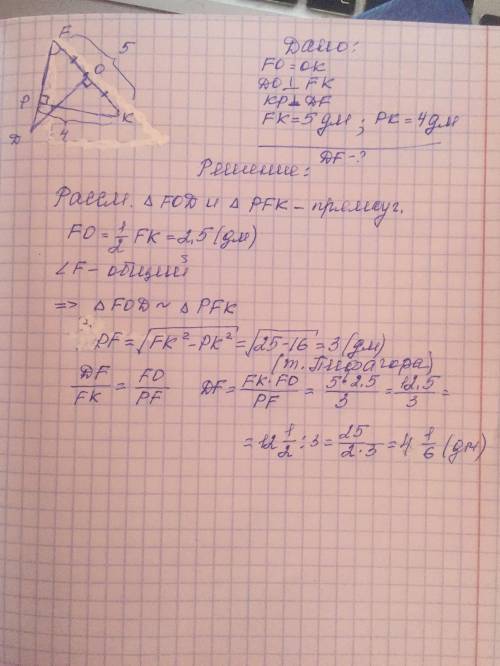 F
5
O
P
K
D
4
Дано:
FO = OK
DO ⊥ FK
KP ⊥ DF
FK = 5 дм ; PK = 4 дм
DF - ?
Решение:
Рассм. △ FOD и △ PFK – прямоуг.
FO = 1/2 FK = 2,5 (дм)
∠F – общий
=> △ FOD ~ △ PFK
PF = √(FK² - PK²) = √(25 - 16) = 3 (дм)
(т. Пифагора)
DF/FK = FO/PF DF = FK·FO/PF = 5·2,5/3 = 12,5/3 =
= 12 1/2 : 3 = 25/2·3 = 4 1/6 (дм)